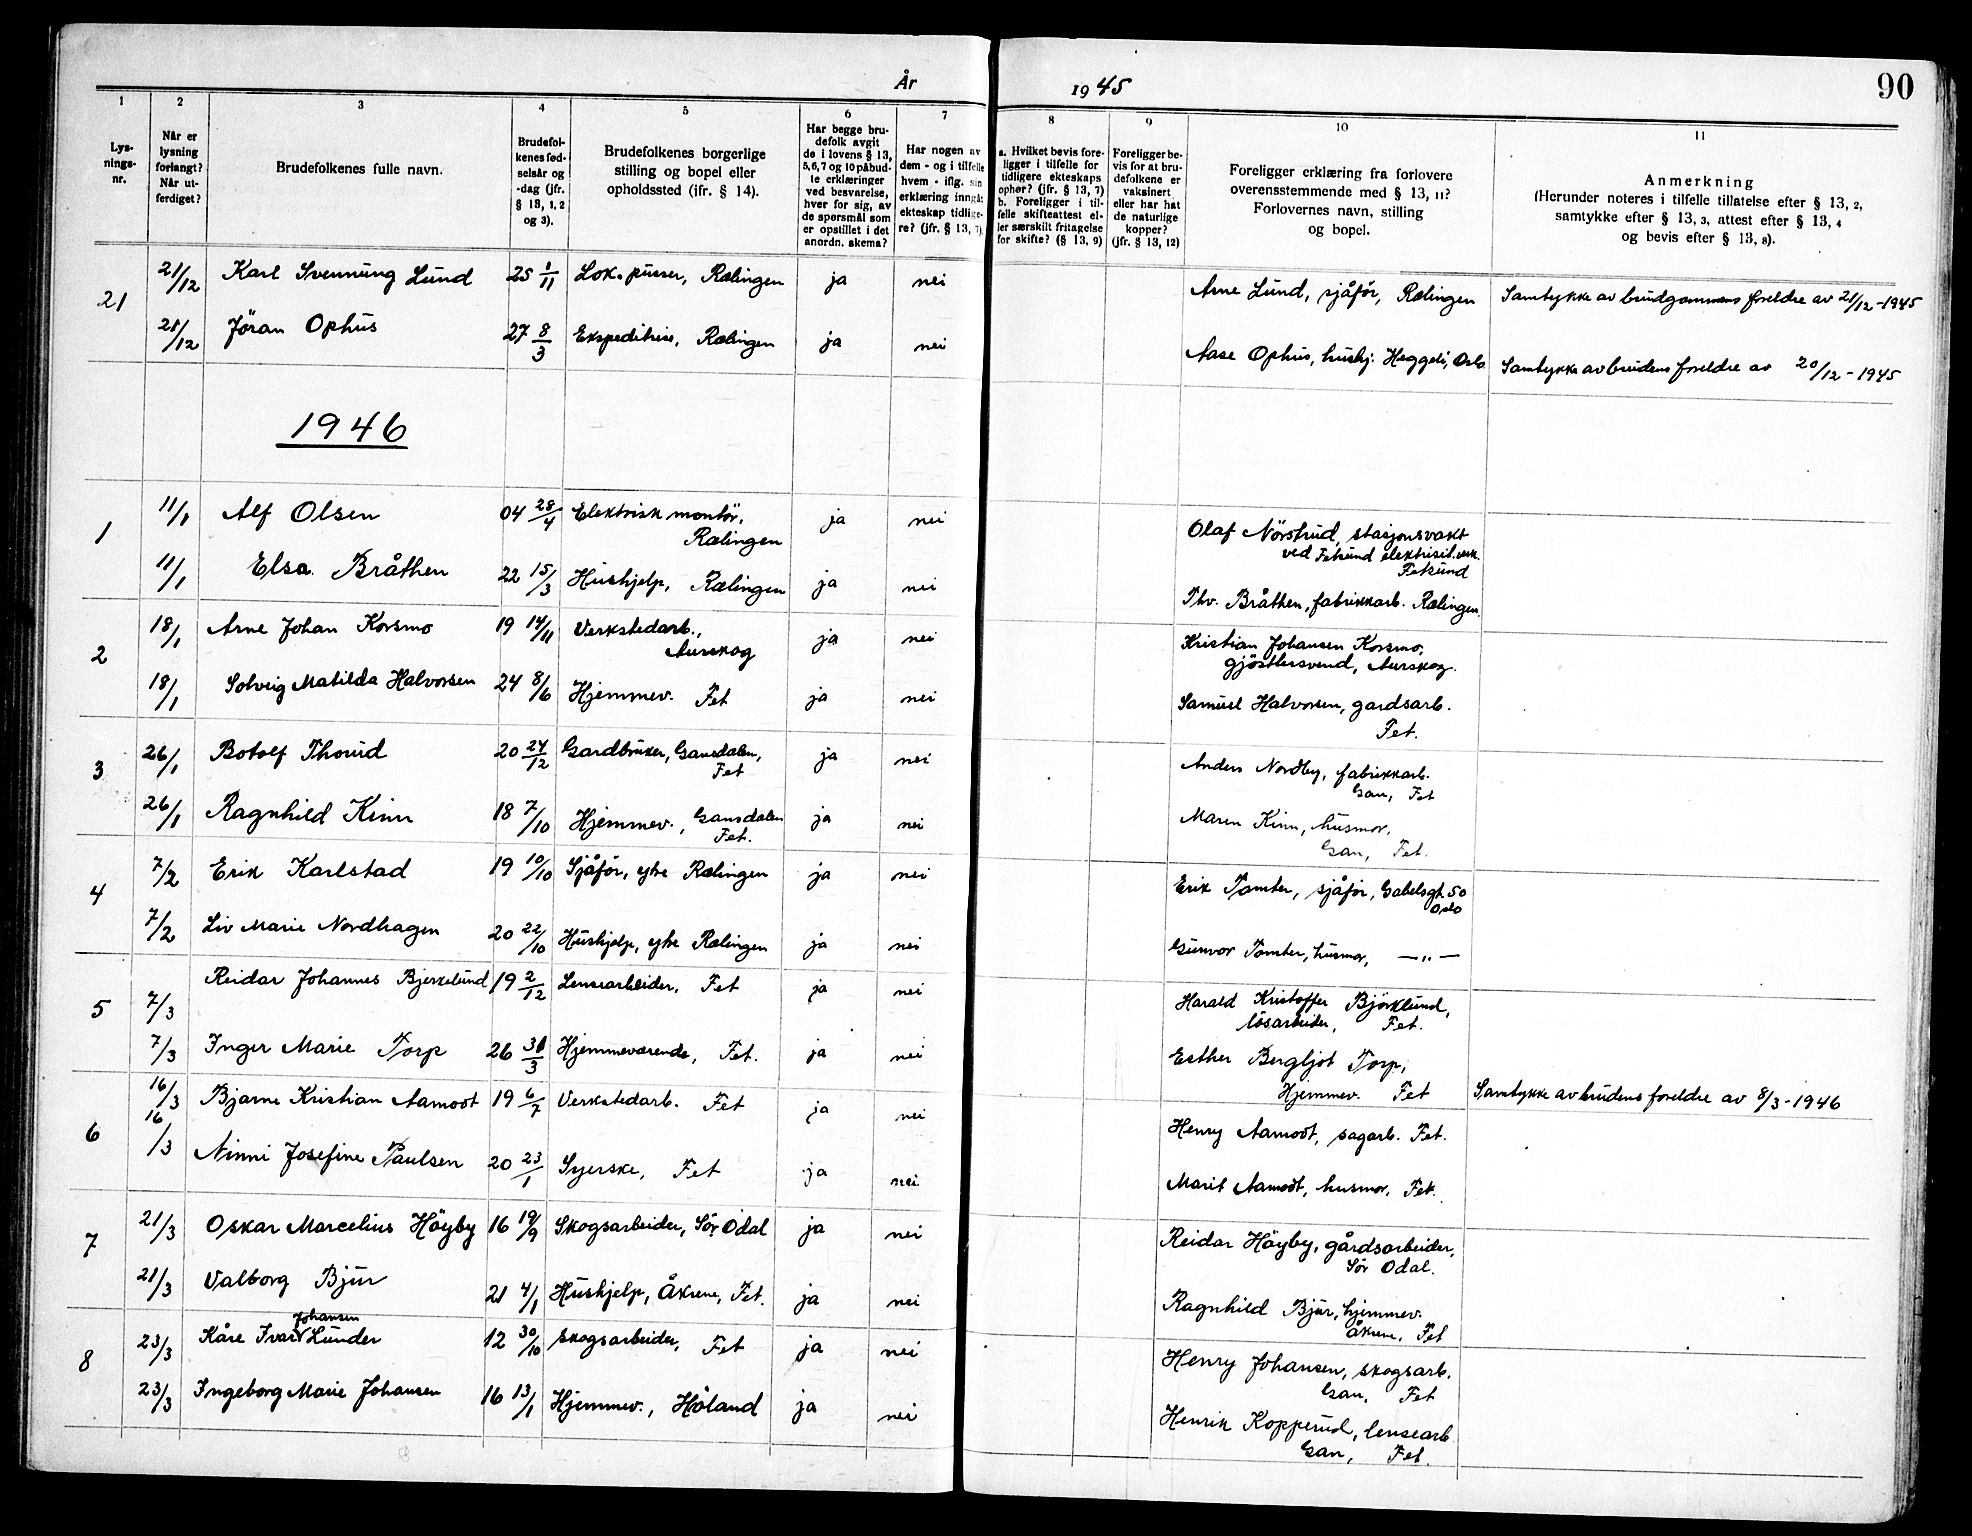 År 1945
90
1 2 3 4 5 6 7 8 9 10 11
Lys-
nings-
nr.
Når er
lysning
forlangt?
Når ut-
ferdiget?
Brudefolkenes fulle navn.
Brudefol-
kenes fød-
selsår og
-dag (jfr.
§ 13, 1, 2
og 3).
Brudefolkenes borgerlige
stilling og bopel eller
opholdssted (ifr. § 14).
Har begge bru-
defolk avgit
de i lovens § 13,
5, 6, 7 og 10 påbud-
te erklæringer
ved besvarelse,
hver for sig, av
de spørsmål som
er opstillet i det
anordn. skema?
Har nogen av
dem - og i tilfelle
hvem - iflg. sin
erklæring inngåt
ekteskap tidlige-
re? (jfr. § 13, 7).
a. Hvilket bevis fore-
ligger i tilfelle for
tidligere ekteskaps
ophør? (jfr. § 13, 7)
b. Foreligger i til-
felle skifteattest el-
ler særskilt fritagelse
for skifte? (§ 13, 9)
Foreligger be-
vis for at bru-
defolkene er
vaksinert
eller har hat
de naturlige
kopper?
(jfr. § 13, 12)
Foreligger erklæring fra forlovere
overensstemmende med § 13, 11?
Forlovernes navn, stilling
og bopel.
Anmerkning
(Herunder noteres i tilfelle tillatelse efter § 13, 2,
samtykke efter § 13, 3, attest efter § 13, 4
og bevis efter § 13, 8).
21 21/12 Karl Svennung Lund 25 1/11 Lok.pusser, Rælingen ja nei Arne Lund, sjåför, Rælingen Samtykke av brudgommens foreldre av 21/12-1945
21/12 Jöran Ophus 27 8/3 Ekspeditrise, Rælingen ja nei Aase Ophus, hushj. Heggeli, Oslo Samtykke av brudens foreldre av 20/12-1945
1946
1 11/1 Alf Olsen 04 28/4 Elektrisk montör, Rælingen ja nei Olaf Nörstrud, stasjonsvakt
ved Fetsund elektrisit.verk.
Fetsund
11/1 Elsa Bråthen 22 15/3 Hushjelp, Rælingen ja nei Thv. Bråthen, fabrikkarb. Rælingen.
2 18/1 Arne Johan Korsmo 19 14/11 Verkstedarb., Aurskog ja nei Kristian Johansen Korsmo,
gjöstlersvend, Aurskog.
18/1 Solveig Matilda Halvorsen 24 8/6 Hjemmev. Fet ja nei Samuel Halvorsen, gardsarb.
Fet.
3 26/1 Botolf Thorud 20 24/12 Gardbruker, Gansdalen, Fet ja nei Anders Nordby, fabrikkarb.
Gan, Fet
26/1 Ragnhild Kinn 18 7/10 Hjemmev., Gansdalen Fet. ja nei Maren Kinn, husmor,
Gan, Fet.
4 7/2 Erik Karlstad 19 10/10 Sjåför, ytre Rælingen ja nei Erik Tomter, sjåför, Gabelsgt. 50
Oslo
7/2 Liv Marie Nordhagen 20 22/10 Hushjelp, ytre Rælingen ja nei Gunvor Tomter, husmor, —"—
5 7/3 Reidar Johannes Bjerkelund 19 2/12 Lensearbeider, Fet ja nei Harald Kristoffer Björklund,
lösarbeider, Fet.
7/3 Inger Marie Torp 26 31/3 Hjemmeværende, Fet. ja nei Esther Bergljot Torp,
Hjemmev. Fet Samtykke av brudens foreldre av 8/3-1946
6 16/3 Bjarne Kristian Aamodt 19 6/7 Verkstedarb. Fet ja nei Henry Aamodt, sagarb. Fet.
16/3 Ninni Josefine Paulsen 20 23/1 Syerske, Fet ja nei Marit Aamodt, husmor, Fet.
7 21/3 Oskar Marcelius Höyby 16 19/9 Skogsarbeider, Sör Odal ja nei Reidar Höyby, gårdsarbeider,
Sör Odal.
21/3 Valborg Bjur 21 4/1 Hushjelp, Åkrene, Fet. ja nei Ragnhild Bjur, hjemmev.
Åkrene, Fet
Johansen
8 23/3 Kåre Ivar Lunder 12 30/10 skogsarbeider, Fet ja nei Henry Johansen, skogsarb.
Gan, Fet
23/3 Ingeborg Marie Johansen 16 13/1 Hjemmev., Höland ja nei Henrik Kopperud, lensearb
Gan, Fet.